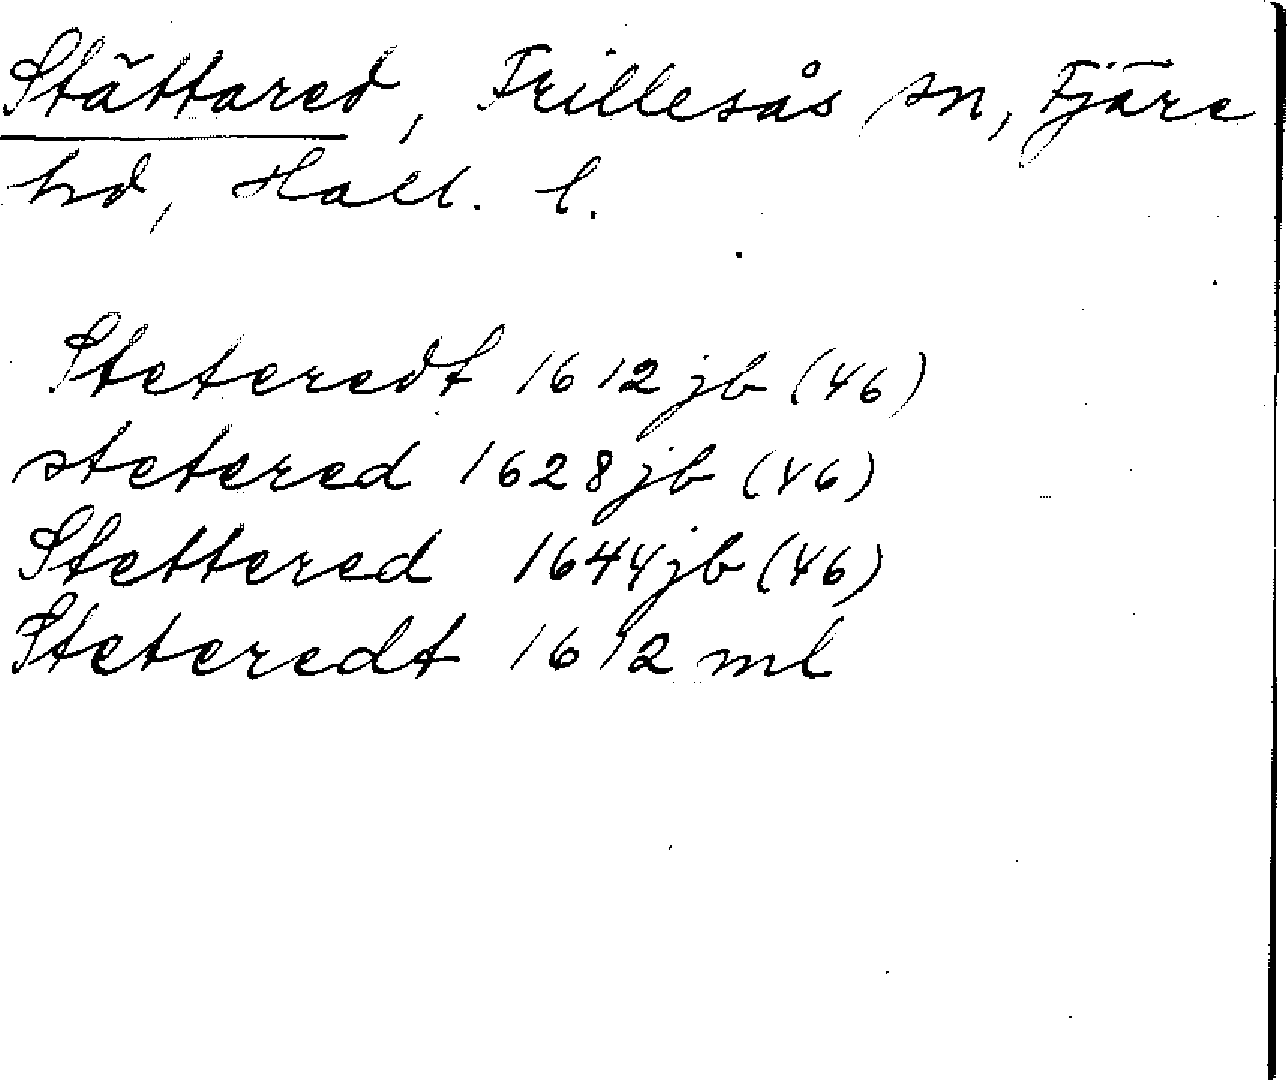 Stättared, Frillesås sn, Fjäre
hd, Hall. l.
Steteredt 1612 jb (46)
stetered 1628 jb (46)
Stettered 1644 jb (46)
Steteredt 1612 ml